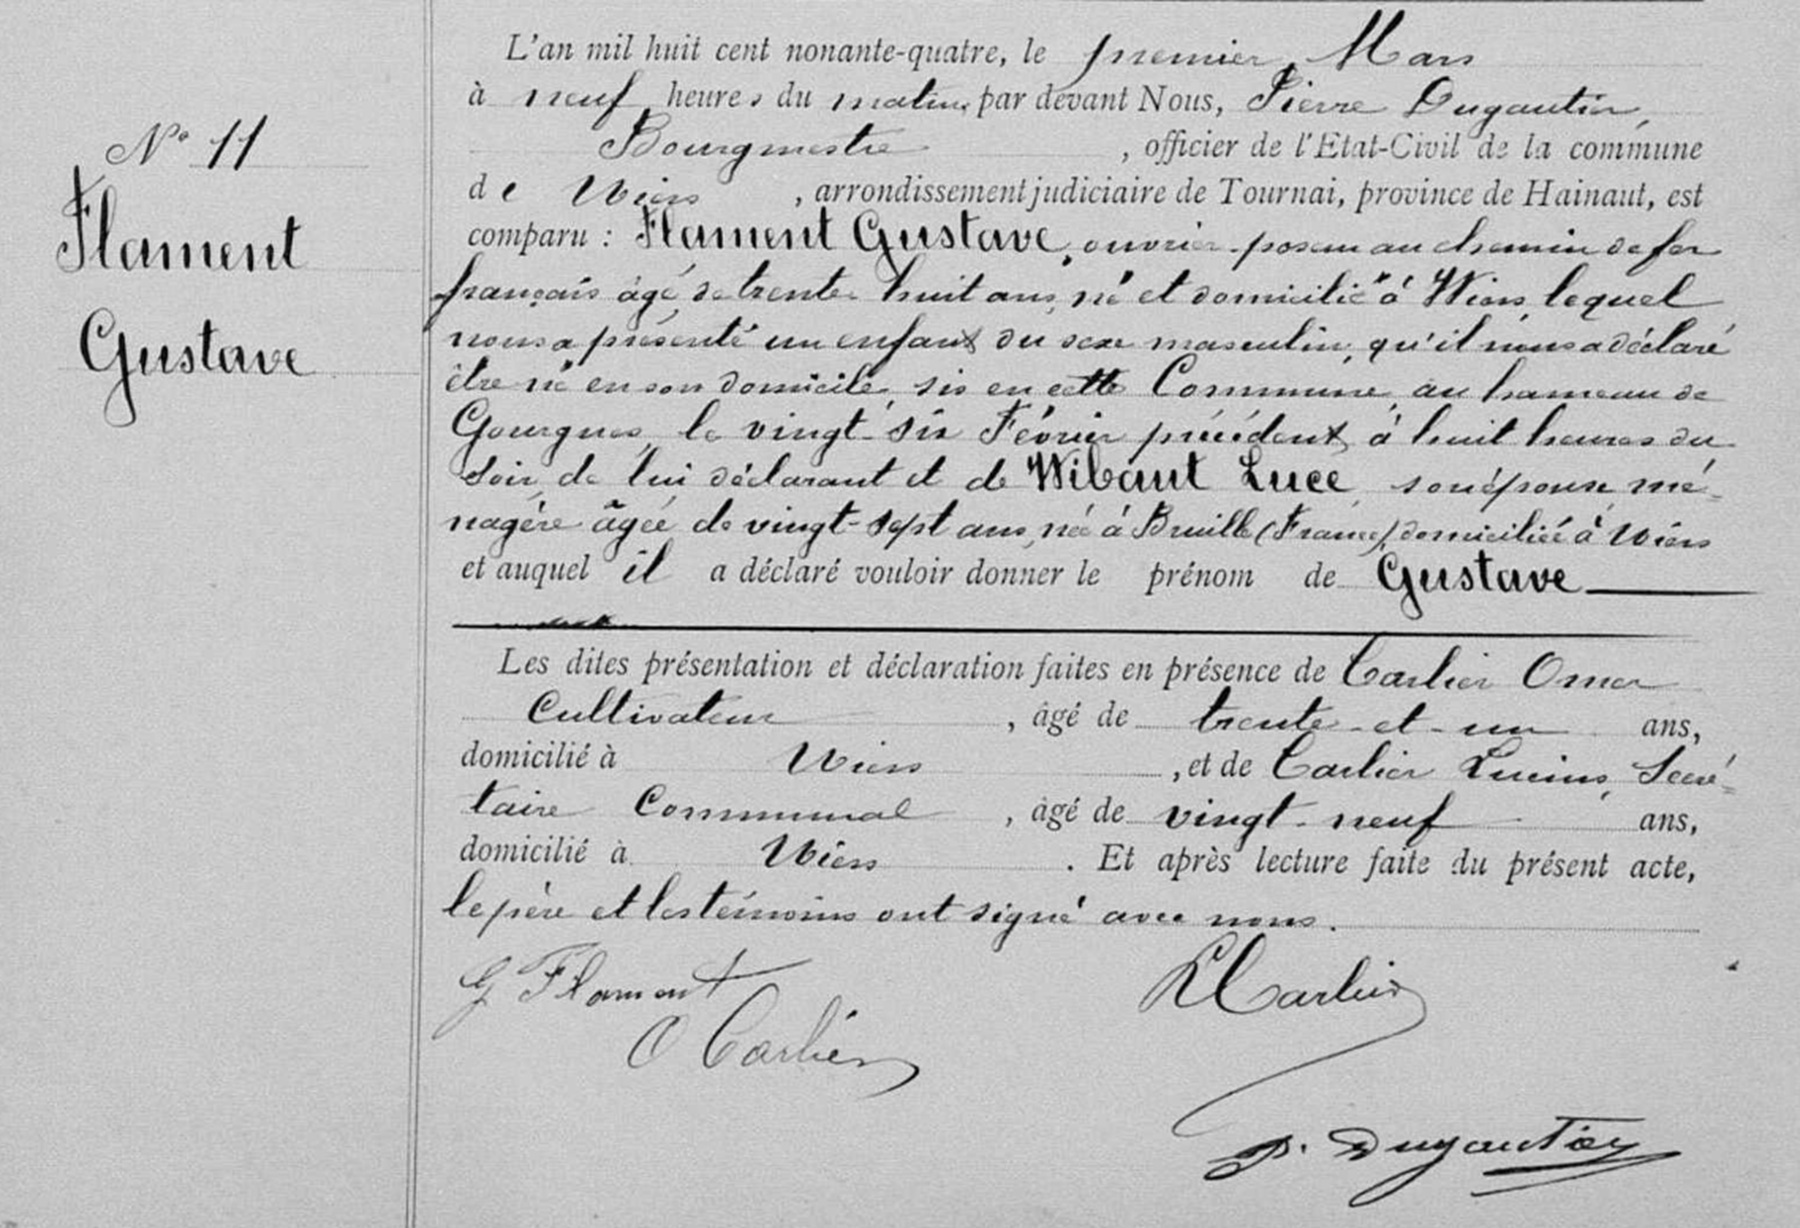 L'an mil huit cent nonante-quatre, le premier Mars
à neuf heures du matin, par devant Nous, Pierre Dugautier,
N° 11
Bourgmestre, officier de l'Etat-Civil de la commune
de Wiers, arrondissement judiciaire de Tournai, province de Hainaut, est
Flament
comparu : Flament Gustave, ouvrier poseur au chemin de fer
français âgé de trente huit ans, né et domicilié à Wiers, lequel
Gustave
nous a présenté un enfant du sexe masculin, qu'il nous a déclaré
être né en son domicile, sis en cette Commune, au hameau de
Gourgues, le vingt-six Février précédent, à huit heures du
soir, de lui déclarant et de Wibaut Luce, son épouse, mé-
nagère âgée de vingt-sept ans, née à Bruille (France), domiciliée à Wiers
et auquel il a déclaré vouloir donner le prénom de Gustave
Les dites présentation et déclaration faites en présence de Carlier Omer
Cultivateur, âgé de trente-et-un ans,
domicilié à Wiers, et de Carlier Lucius, Secré-
taire Communal, âgé de vingt-neuf ans,
domicilié à Wiers. Et après lecture faite du présent acte,
le père et les témoins ont signé avec nous.
G Flament
L Carlier
O Carlier
P. Dugautier